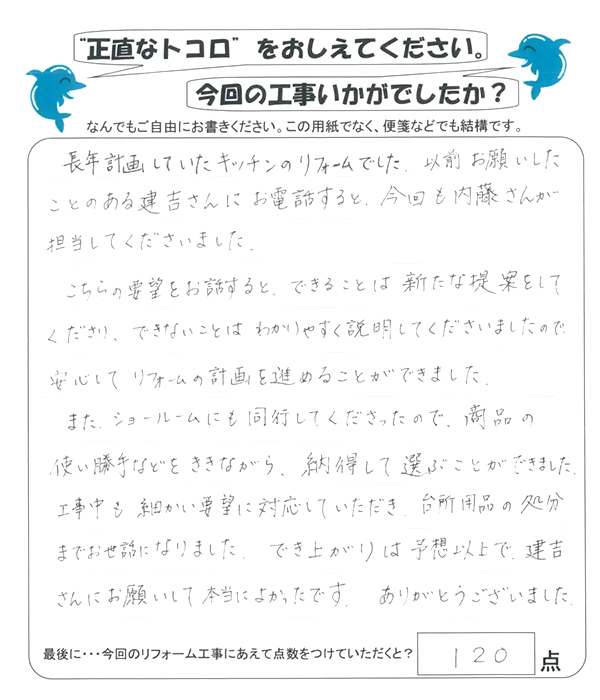 "正直なトコロ"をおしえてください。
今回の工事いかがでしたか?
なんでもご自由にお書きください。この用紙でなく、便箋などでも結構です。
長年計画していたキッチンのリフォームでした。以前お願いした
ことのある建吉さんにお電話すると、今回も内藤さんが
担当してくださいました。
こちらの要望をお話すると、できることは新たな提案をして
くださり、できないことはわかりやすく説明してくださいましたので
安心してリフォームの計画を進めることができました。
また、ショールームにも同行してくださったので、商品の
使い勝手などをききながら、納得して選ぶことができました。
工事中も細かい要望に対応していただき、台所用品の処分
までお世話になりました。でき上がりは予想以上で、建吉
さんにお願いして本当によかったです。ありがとうございました。
最後に・・・今回のリフォーム工事にあえて点数をつけていただくと? 120点